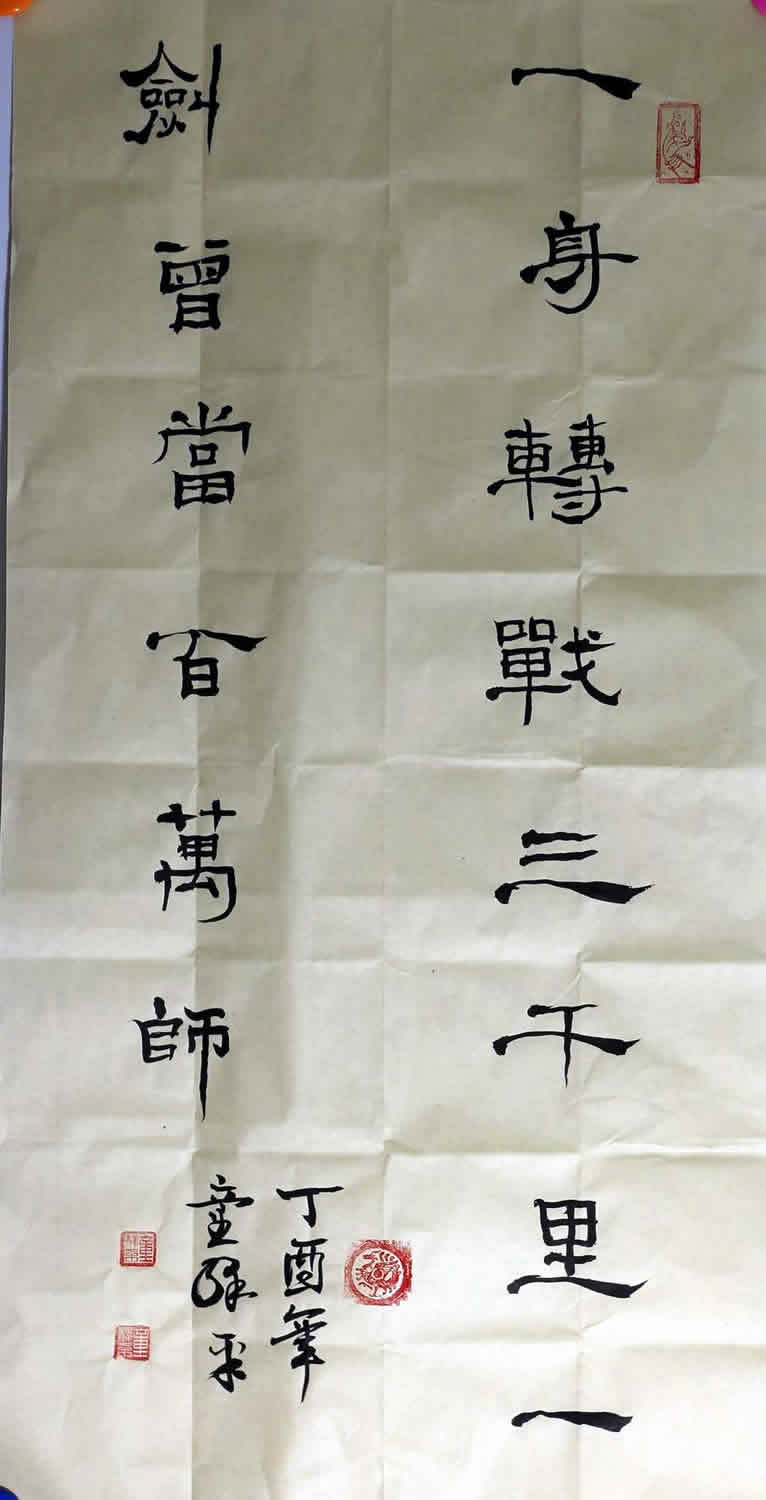 一身轉戰三千里一
劍曾當百萬師
丁酉年
童 平